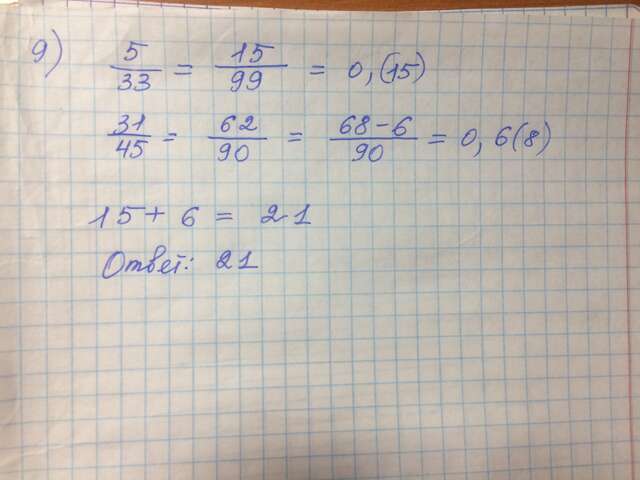 9)
5/33 = 15/99 = 0,(15)
31/45 = 62/90 = 68-6/90 = 0,6(8)
15 + 6 = 21
Ответ: 21